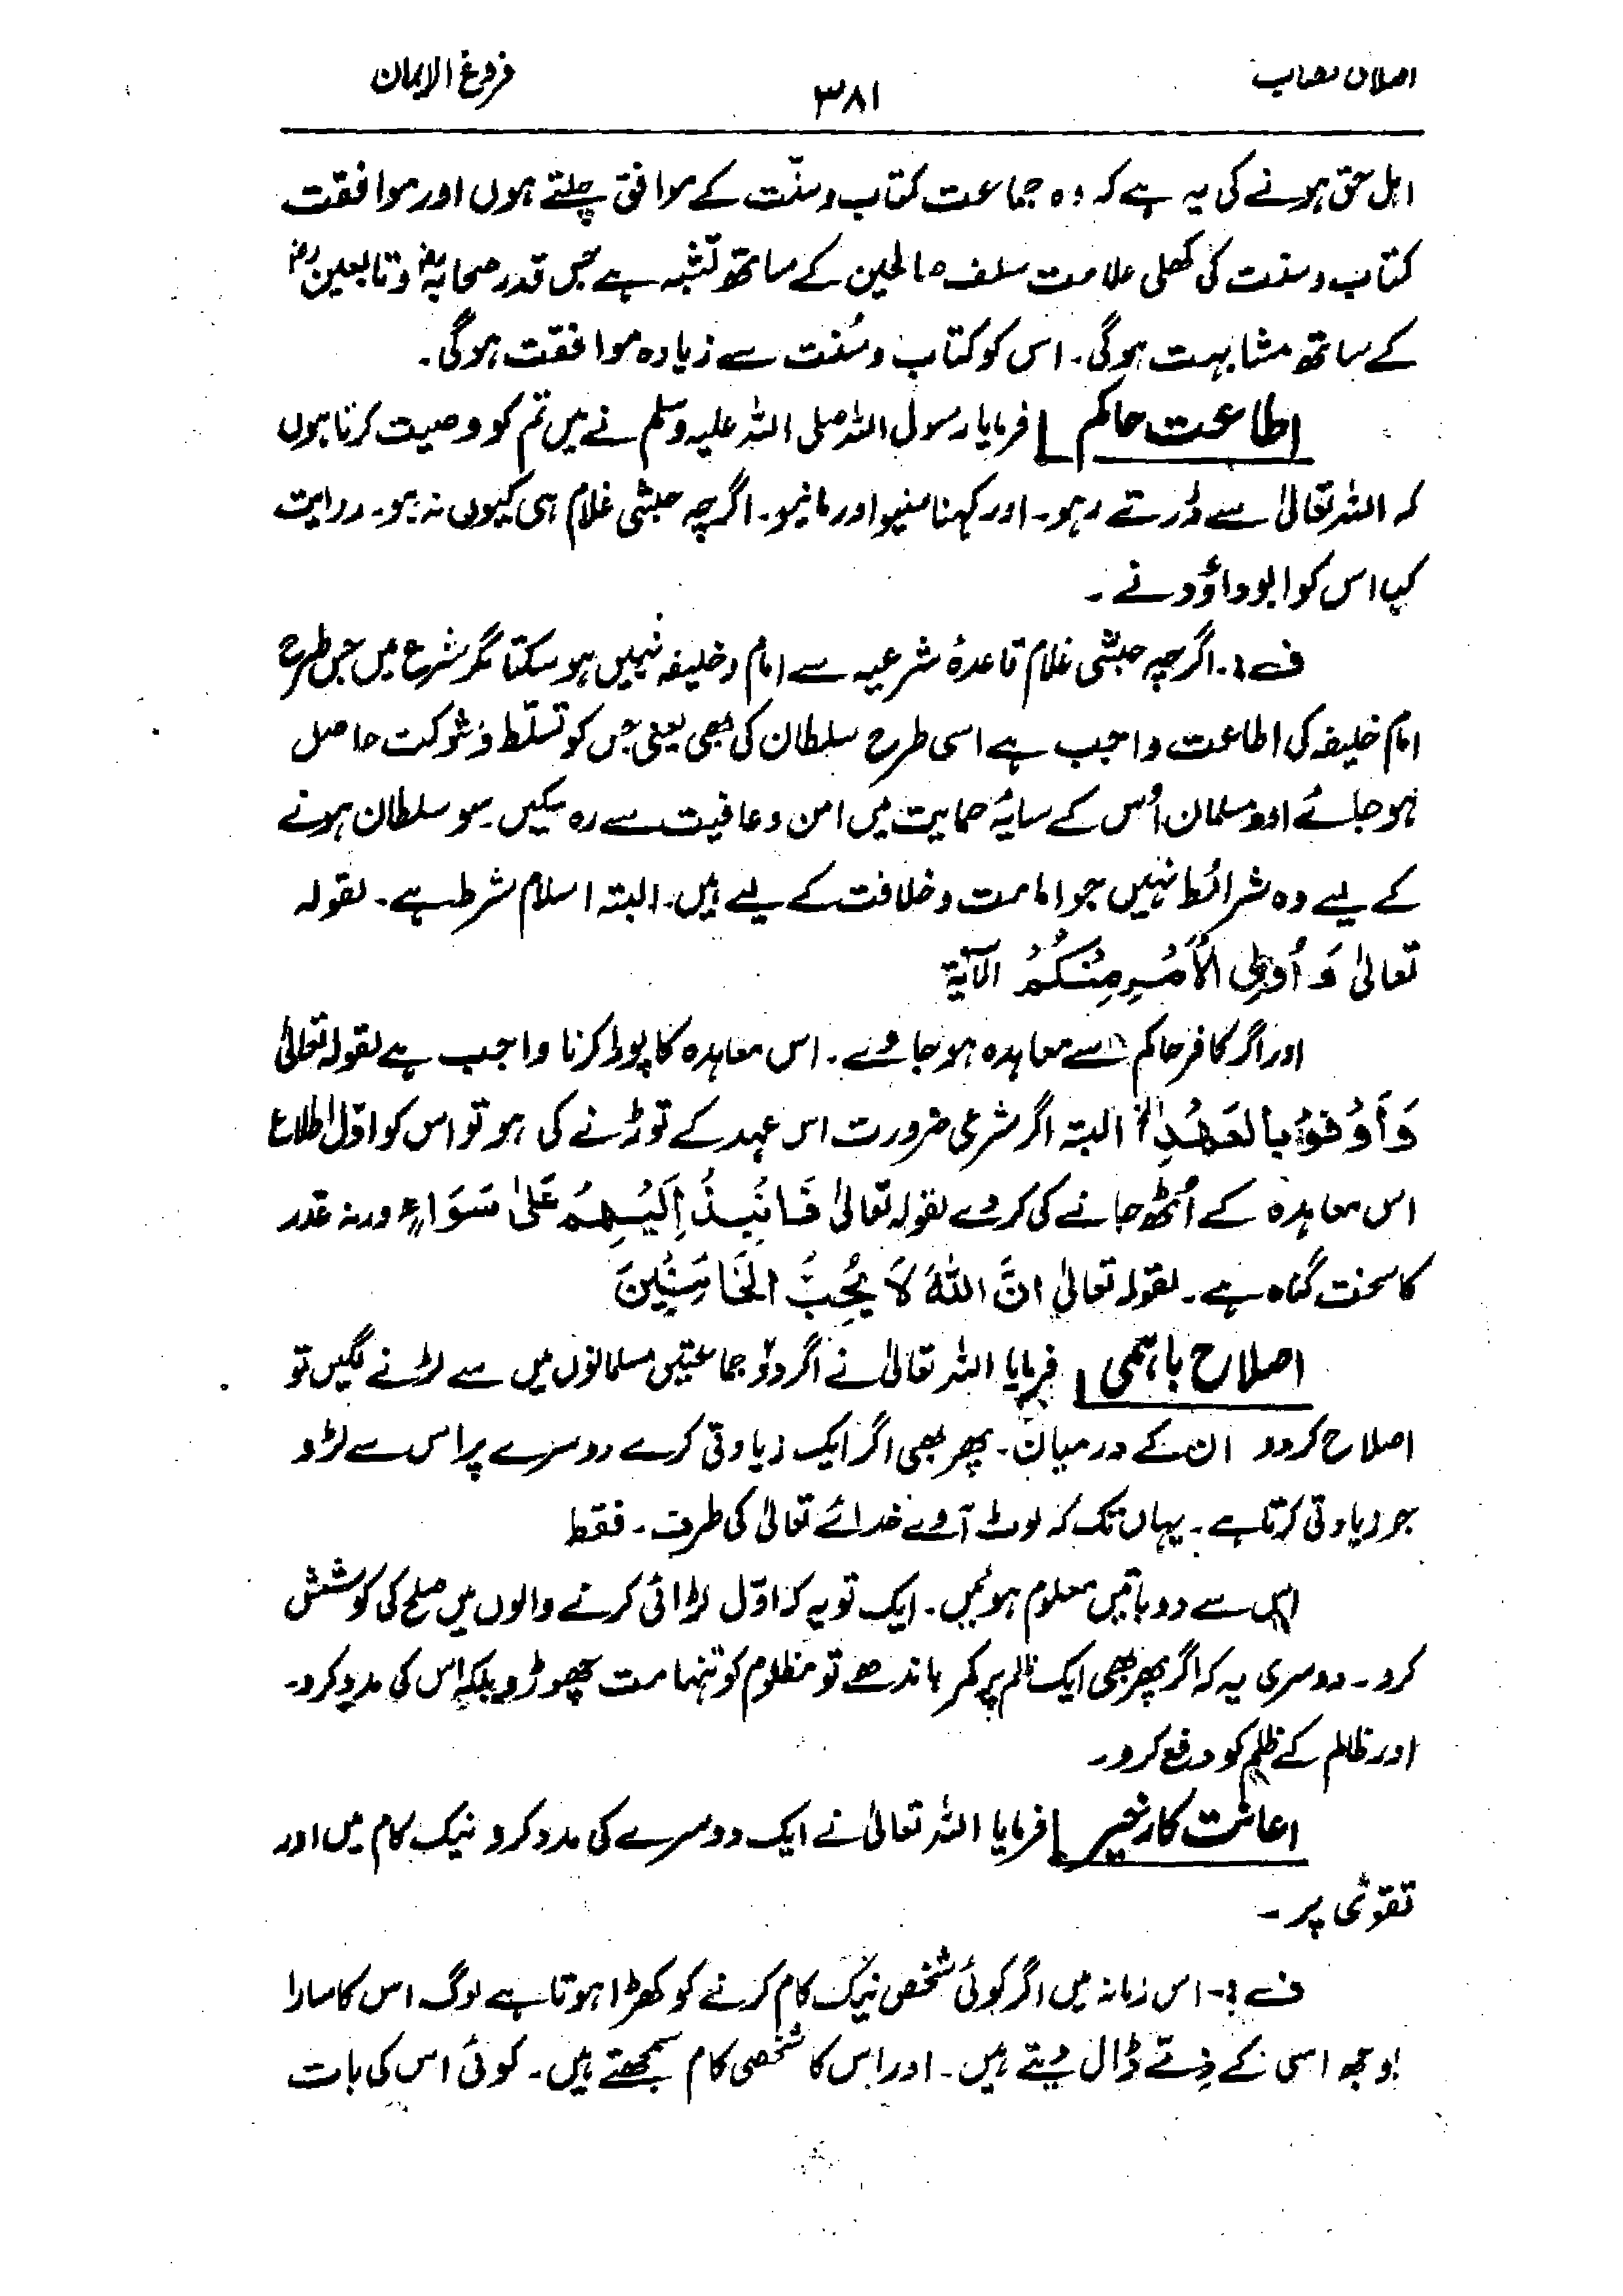 اصلاحی نصاب
۳۸۱
فروغ الایمان
اہل حق ہونے کی یہ ہے کہ وہ جماعت کتاب و سنّت کے موافق چلتے ہوں اور موافقت
کتاب و سنت کی کھلی علامت سلف صالحین کے ساتھ تشبّہ ہے جس قدر صحابہؓ و تابعینؒ
کے ساتھ مشابہت ہوگی۔ اس کو کتاب و سُنت سے زیادہ موافقت ہوگی۔
اطاعت حاکم فرمایا رسول اللہ صلی اللہ علیہ وسلم نے میں تم کو وصیت کرتا ہوں
کہ اللہ تعالیٰ سے ڈرتے رہو۔ اور کہنا سنیو اور مانیو۔ اگرچہ حبشی غلام ہی کیوں نہ ہو۔ روایت
کیا اس کو ابوداؤد نے ۔
ف :۔ اگرچہ حبشی غلام قاعدۂ شرعیہ سے امام و خلیفہ نہیں ہو سکتا مگر شرع میں جس طرح
امام خلیفہ کی اطاعت واجب ہے اسی طرح سلطان کی بھی یعنی جس کو تسلّط و شوکت حاصل
ہو جائے اور مسلمان اُس کے سایۂ حمایت میں امن و عافیت سے رہ سکیں۔ سو سلطان ہونے
کے لیے وہ شرائط نہیں جو امامت و خلافت کے لیے ہیں۔ البتہ اسلام شرط ہے۔ لقولہ
تعالیٰ وَ أُولِی الْأَمْرِ مِنْکُمْ الآیة
اور اگر کافر حاکم سے معاہدہ ہو جاوے۔ اس معاہدہ کا پورا کرنا واجب ہے لقولہ تعالیٰ
وَأَوْفُوْا بِالْعَهْدِ الخ البتہ اگر شرعی ضرورت اس عہد کے توڑنے کی ہو تو اس کو اوّل اطلاع
اس معاہدہ کے اُٹھ جانے کی کر دے لقولہ تعالیٰ فَانْبِذْ إِلَیْهِمْ عَلیٰ سَوَاءٍ ورنہ غدر
کا سخت گناہ ہے۔ لقولہ تعالیٰ اِنَّ اللّٰهَ لَا یُحِبُّ الْخَائِنِیْنَ
اصلاح باہمی فرمایا اللہ تعالیٰ نے اگر دوّ جماعتیں مسلمانوں میں سے لڑنے لگیں تو
اصلاح کر دو ان کے درمیان۔ پھر بھی اگر ایک زیادتی کرے دوسرے پر اس سے لڑو
جو زیادتی کرتا ہے۔ یہاں تک کہ لوٹ آوے خدائے تعالیٰ کی طرف۔ فقط
اس سے دو باتیں معلوم ہوئیں۔ ایک تو یہ کہ اوّل لڑائی کرنے والوں میں صلح کی کوشش
کرو۔ دوسری یہ کہ اگر پھر بھی ایک ظلم پر کمر باندھے تو مظلوم کو تنہا مت چھوڑو بلکہ اس کی مدد کرو۔
اور ظالم کے ظلم کو دفع کرو۔
اعانت کار خیر فرمایا اللہ تعالیٰ نے ایک دوسرے کی مدد کرو نیک کام میں اور
تقوٰی پر ۔
ف :۔ اس زمانہ میں اگر کوئی شخص نیک کام کرنے کو کھڑا ہوتا ہے لوگ اس کا سارا
بوجھ اسی کے ذمّے ڈال دیتے ہیں۔ اور اس کا شخصی کام سمجھتے ہیں۔ کوئی اس کی بات